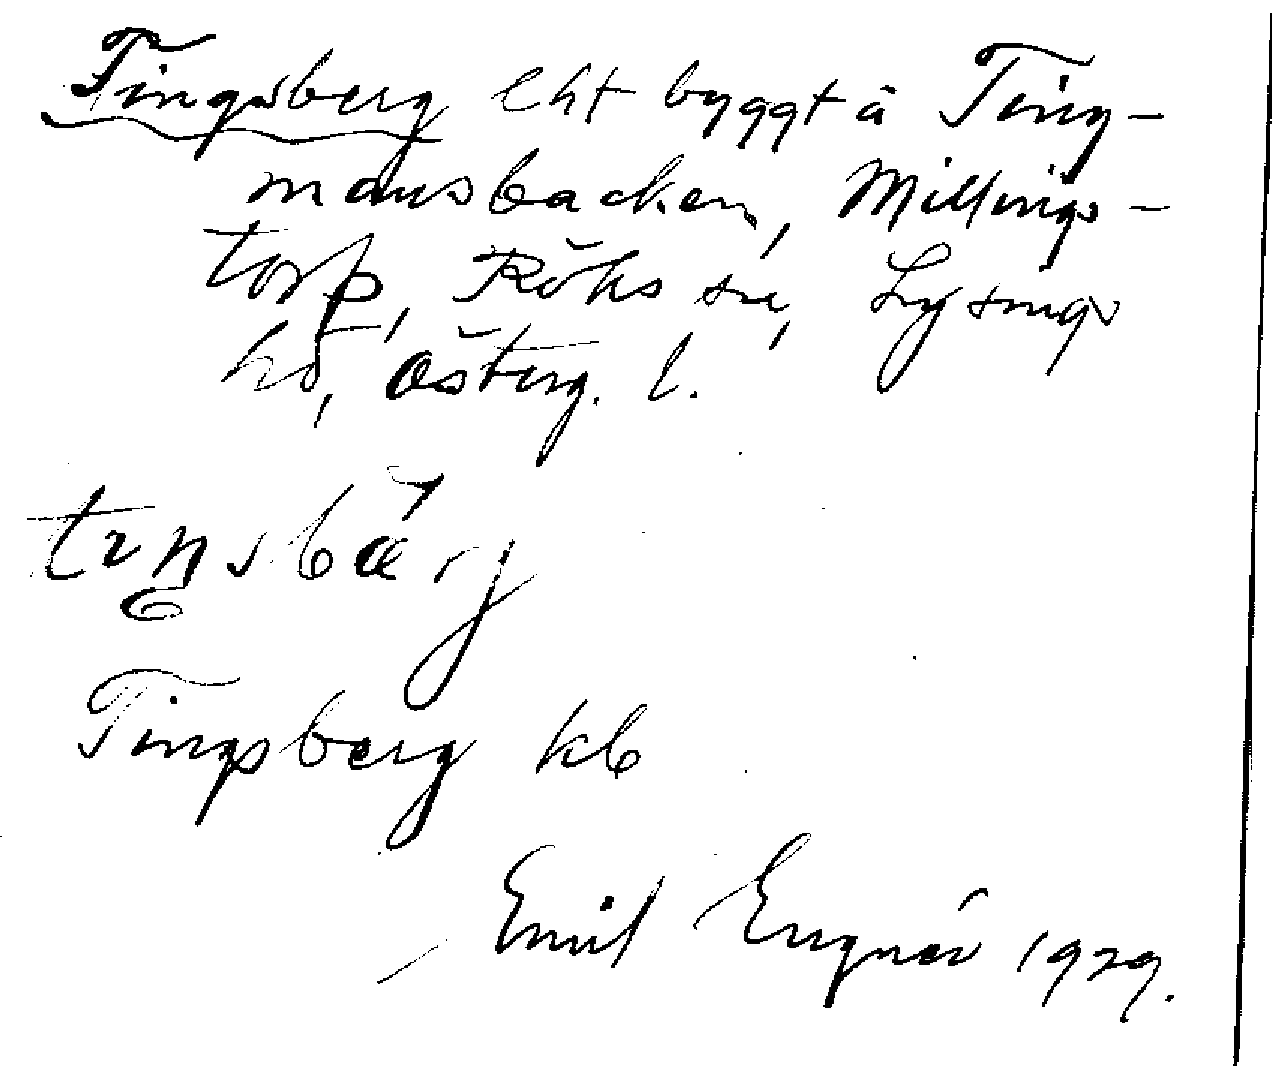 Tingsberg lht byggt å Ting-
mansbacken, Millings-
torp, Röks sn, Lysings
hd, Österg. l.
tıŋsbärj
Tingsberg kb
Emil Engnér 1929.